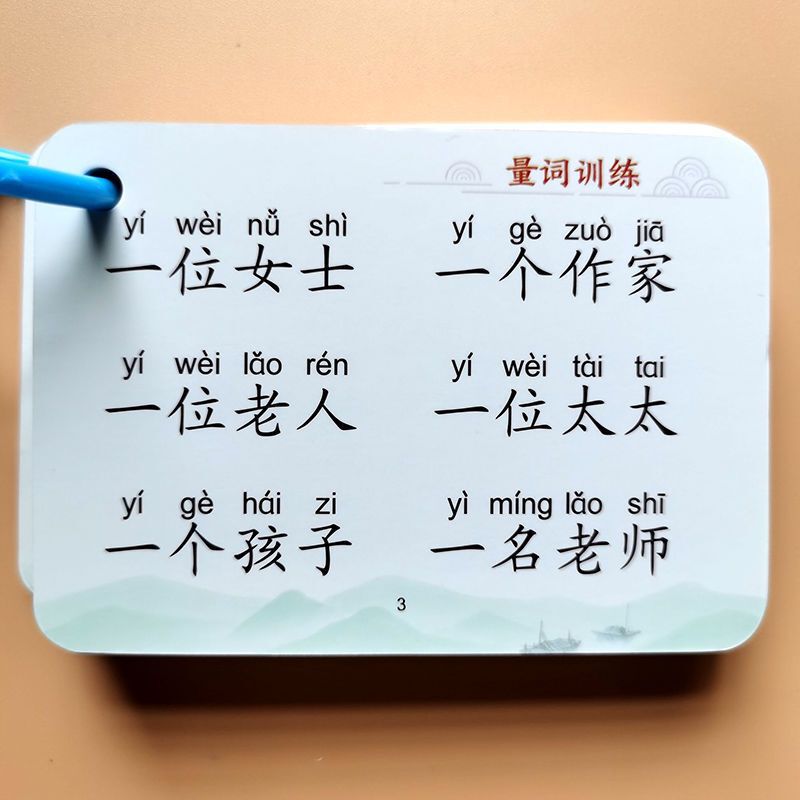 量词训练
yí wèi nǚ shì yí gè zuò jiā
一位女士 一个作家
yí wèi lǎo rén yí wèi tài tai
一位老人 一位太太
yí gè hái zi yì míng lǎo shī
一个孩子 一名老师
3